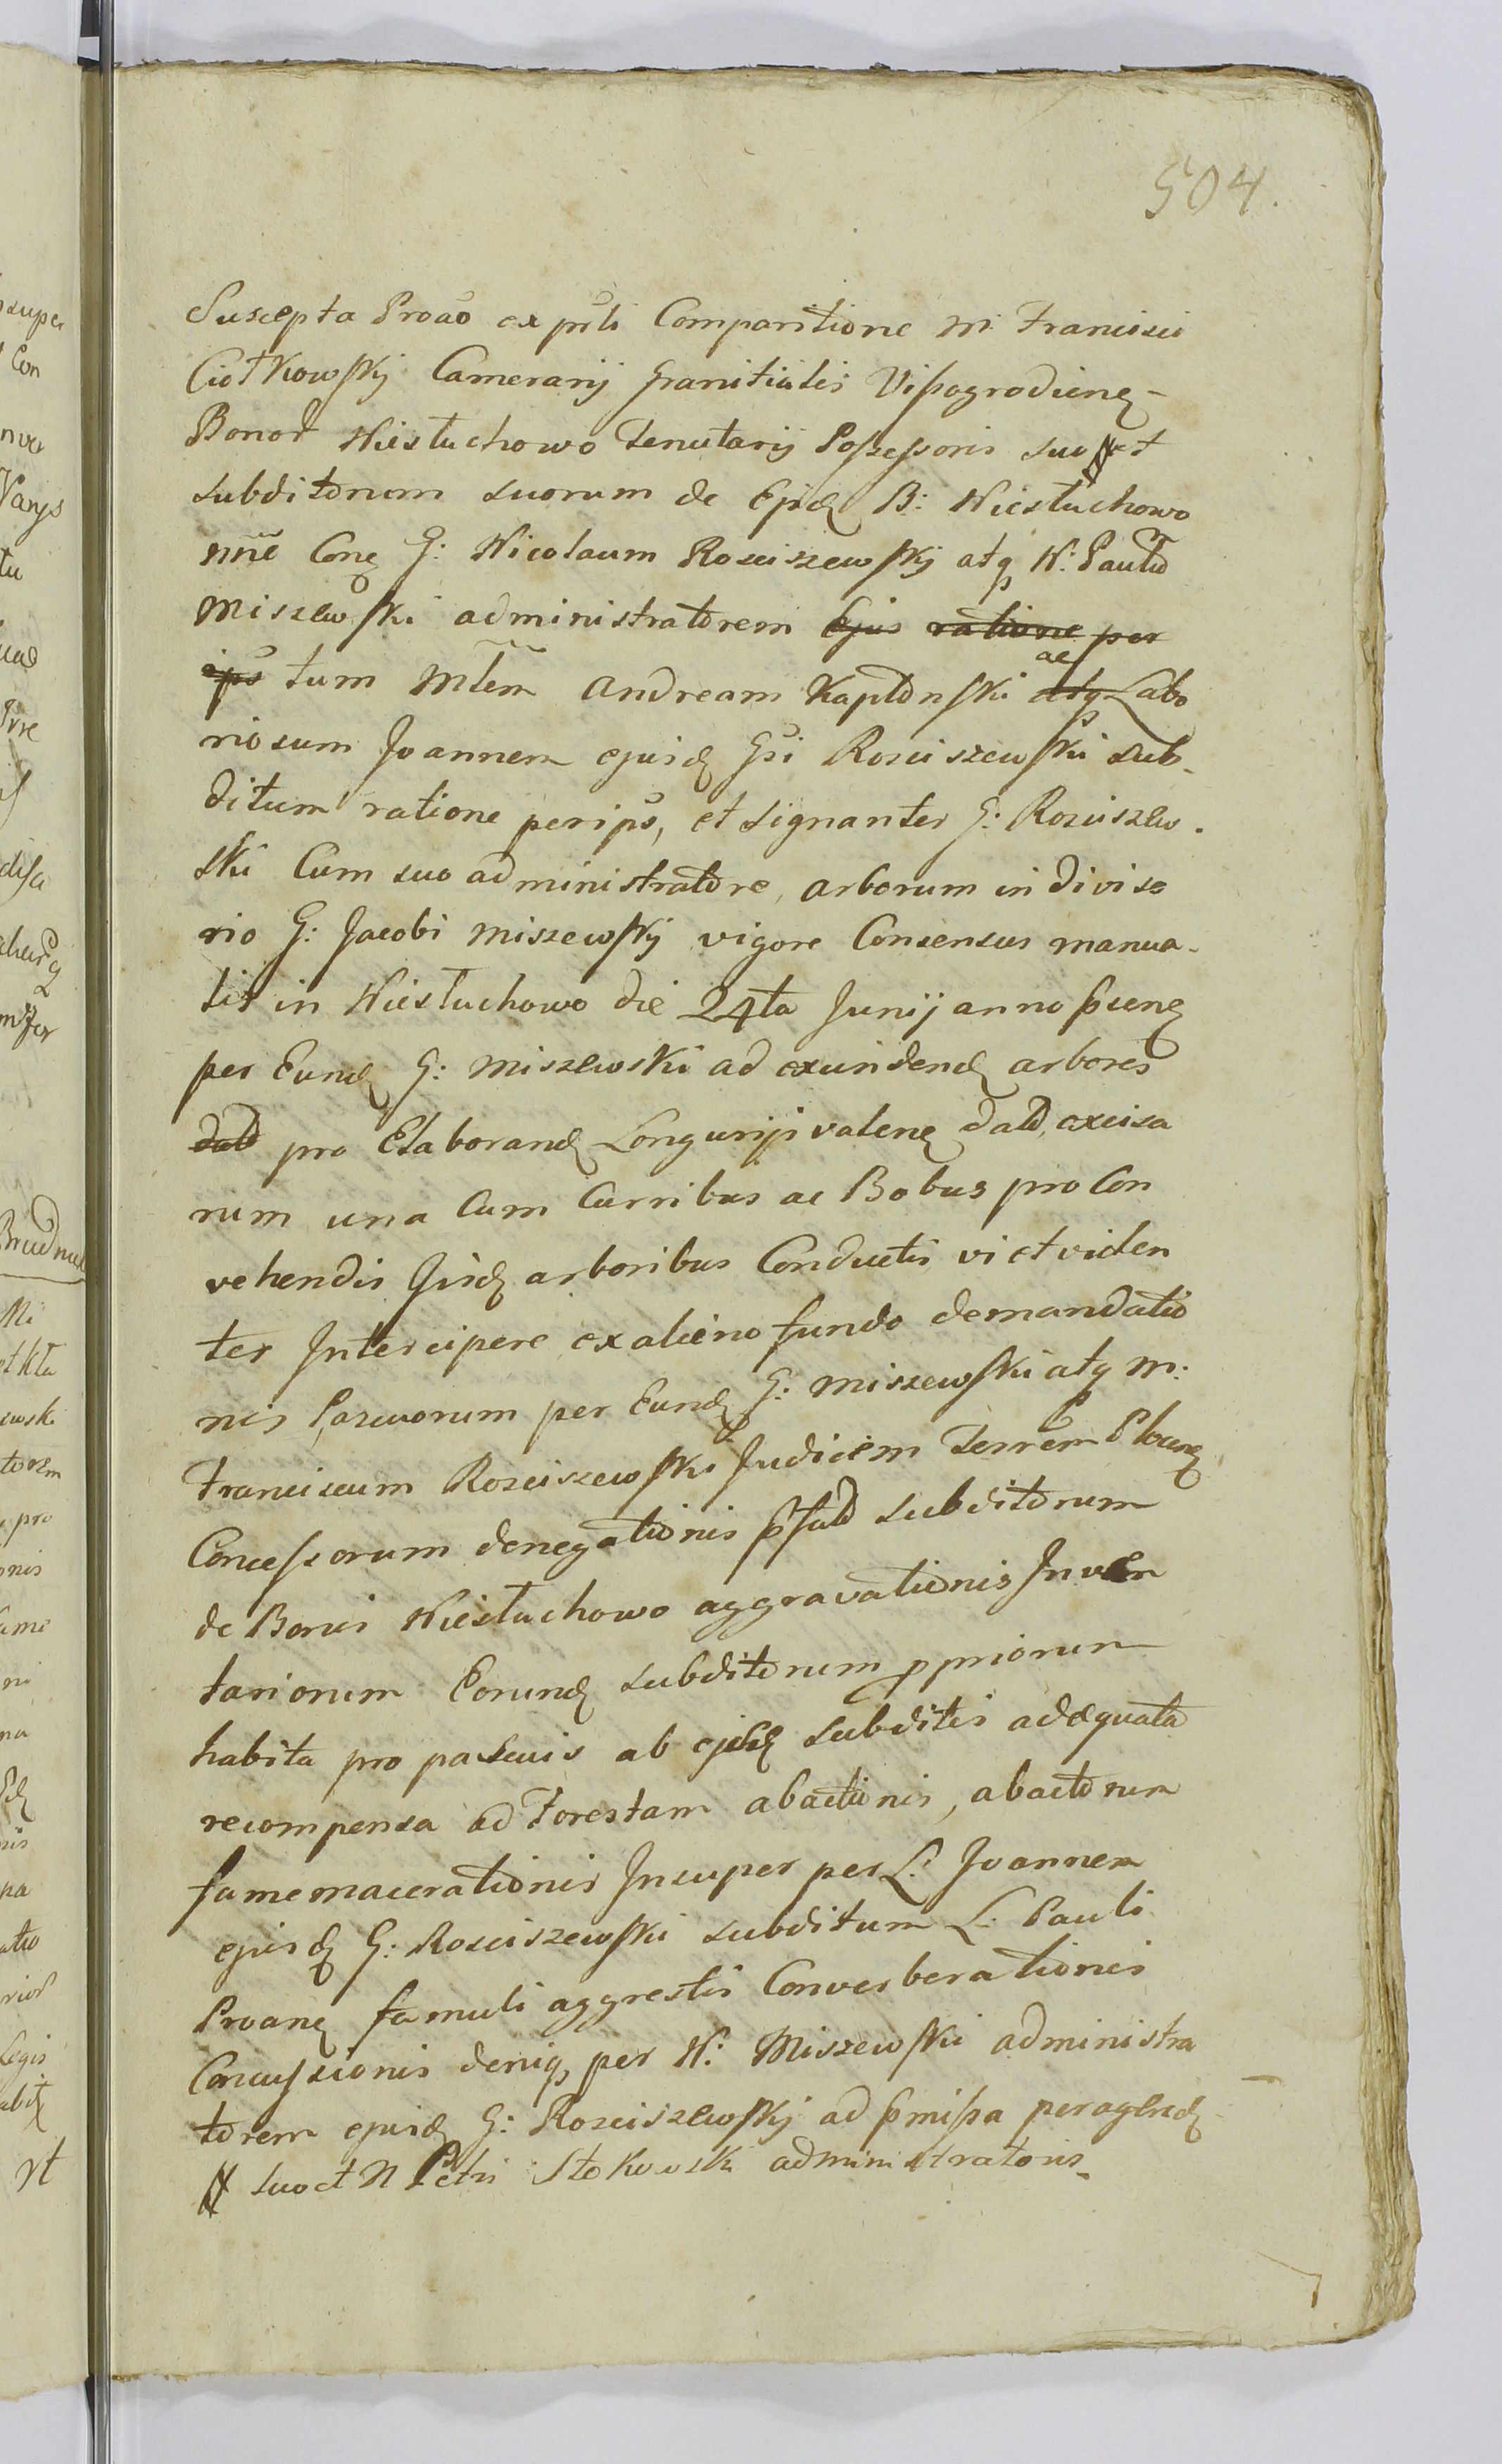 504.
Suscepta Proāo ex prli Comparitione M: Francisci
Ciołkowskij Camerarij Granitialis Vissogrodienę
Bonor Niesłuchowo Tenutarij Possessoris suo # et
subditorum suorum de Ejd B: Niesłuchowo
nñe Conę G: Nicolaum Rosciszewskij atq N: Paulū
Miszewski administratorem Ejus ratione per
ips tum Mlem Andream Kaplonski atq ac Labo
riosum Joannem ejusd Gsi Rosciszewski sub-
ditum ratione per ips, et signanter G: Rosciszew-
ski Cum suo administratore, arborum in diviso
rio G: Jacobi Miszewskij vigore Consensus manua-
lis in Niesłuchowo die 24ta Junij anno psenę
per Eund G: Miszewski ad excindend arbores
dato pro Elaborand Longurijs valenę dato, excisa
rum una Cum Curribus ac Bobus pro Con
vehendis Jisd arboribus Conductis vi et violen
ter Intercipere ex alieno fundo demandatio
nis, Pascuorum per Eund G: Miszewski atq M:
Franciscum Rosciszewski Judicem Terrem Plocenę
Concessorum denegationis pfato subditorum
de Bonis Niesłuchowo aggravationis Inven
tariorum Eorund subditorum ppriorum
habita pro pascuis ab ejisd subditis adæquata
recompensa ad Forestam abactionis, abactorum
fame macerationis Insuper per L: Joannem
ejusd G: Rosciszewski subditum L: Pauli
Proanę famuli aggrestis Converberationis
Concussionis deniq, per N: Miszewski administra
torem ejusd G: Rosciszewskij ad pmissa peragend
# suo et N Petri Stokowski administratoris